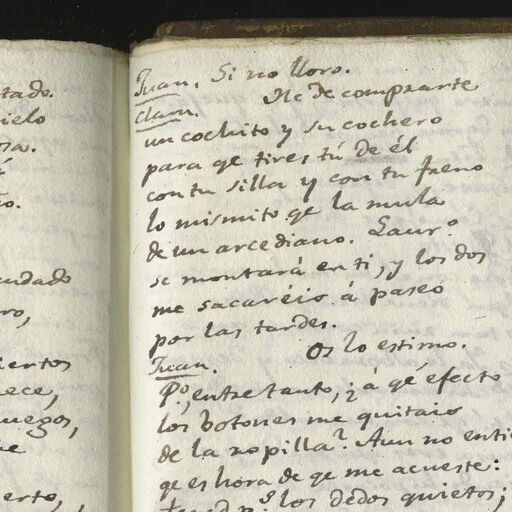 tado.
ielo
za.
o.
undado
ro,
iertos
ece,
uegos,
ue
erto,
Juan. Si no lloro.
Clavn. He de comprarte
un cochito y su cochero
para qe tires tú de él
con tu silla y con tu freno
lo mismito qe la mula
de un arcediano. Laur.o
se montará en ti, y los dos
me sacaréis á paseo
por las tardes.
Juan. Os lo estimo.
Po, entre tanto, ¿á qé efecto
los botones me quitais
de la ropilla? Aun no enti
qe es hora de qe me acueste:
los dedos quietos;